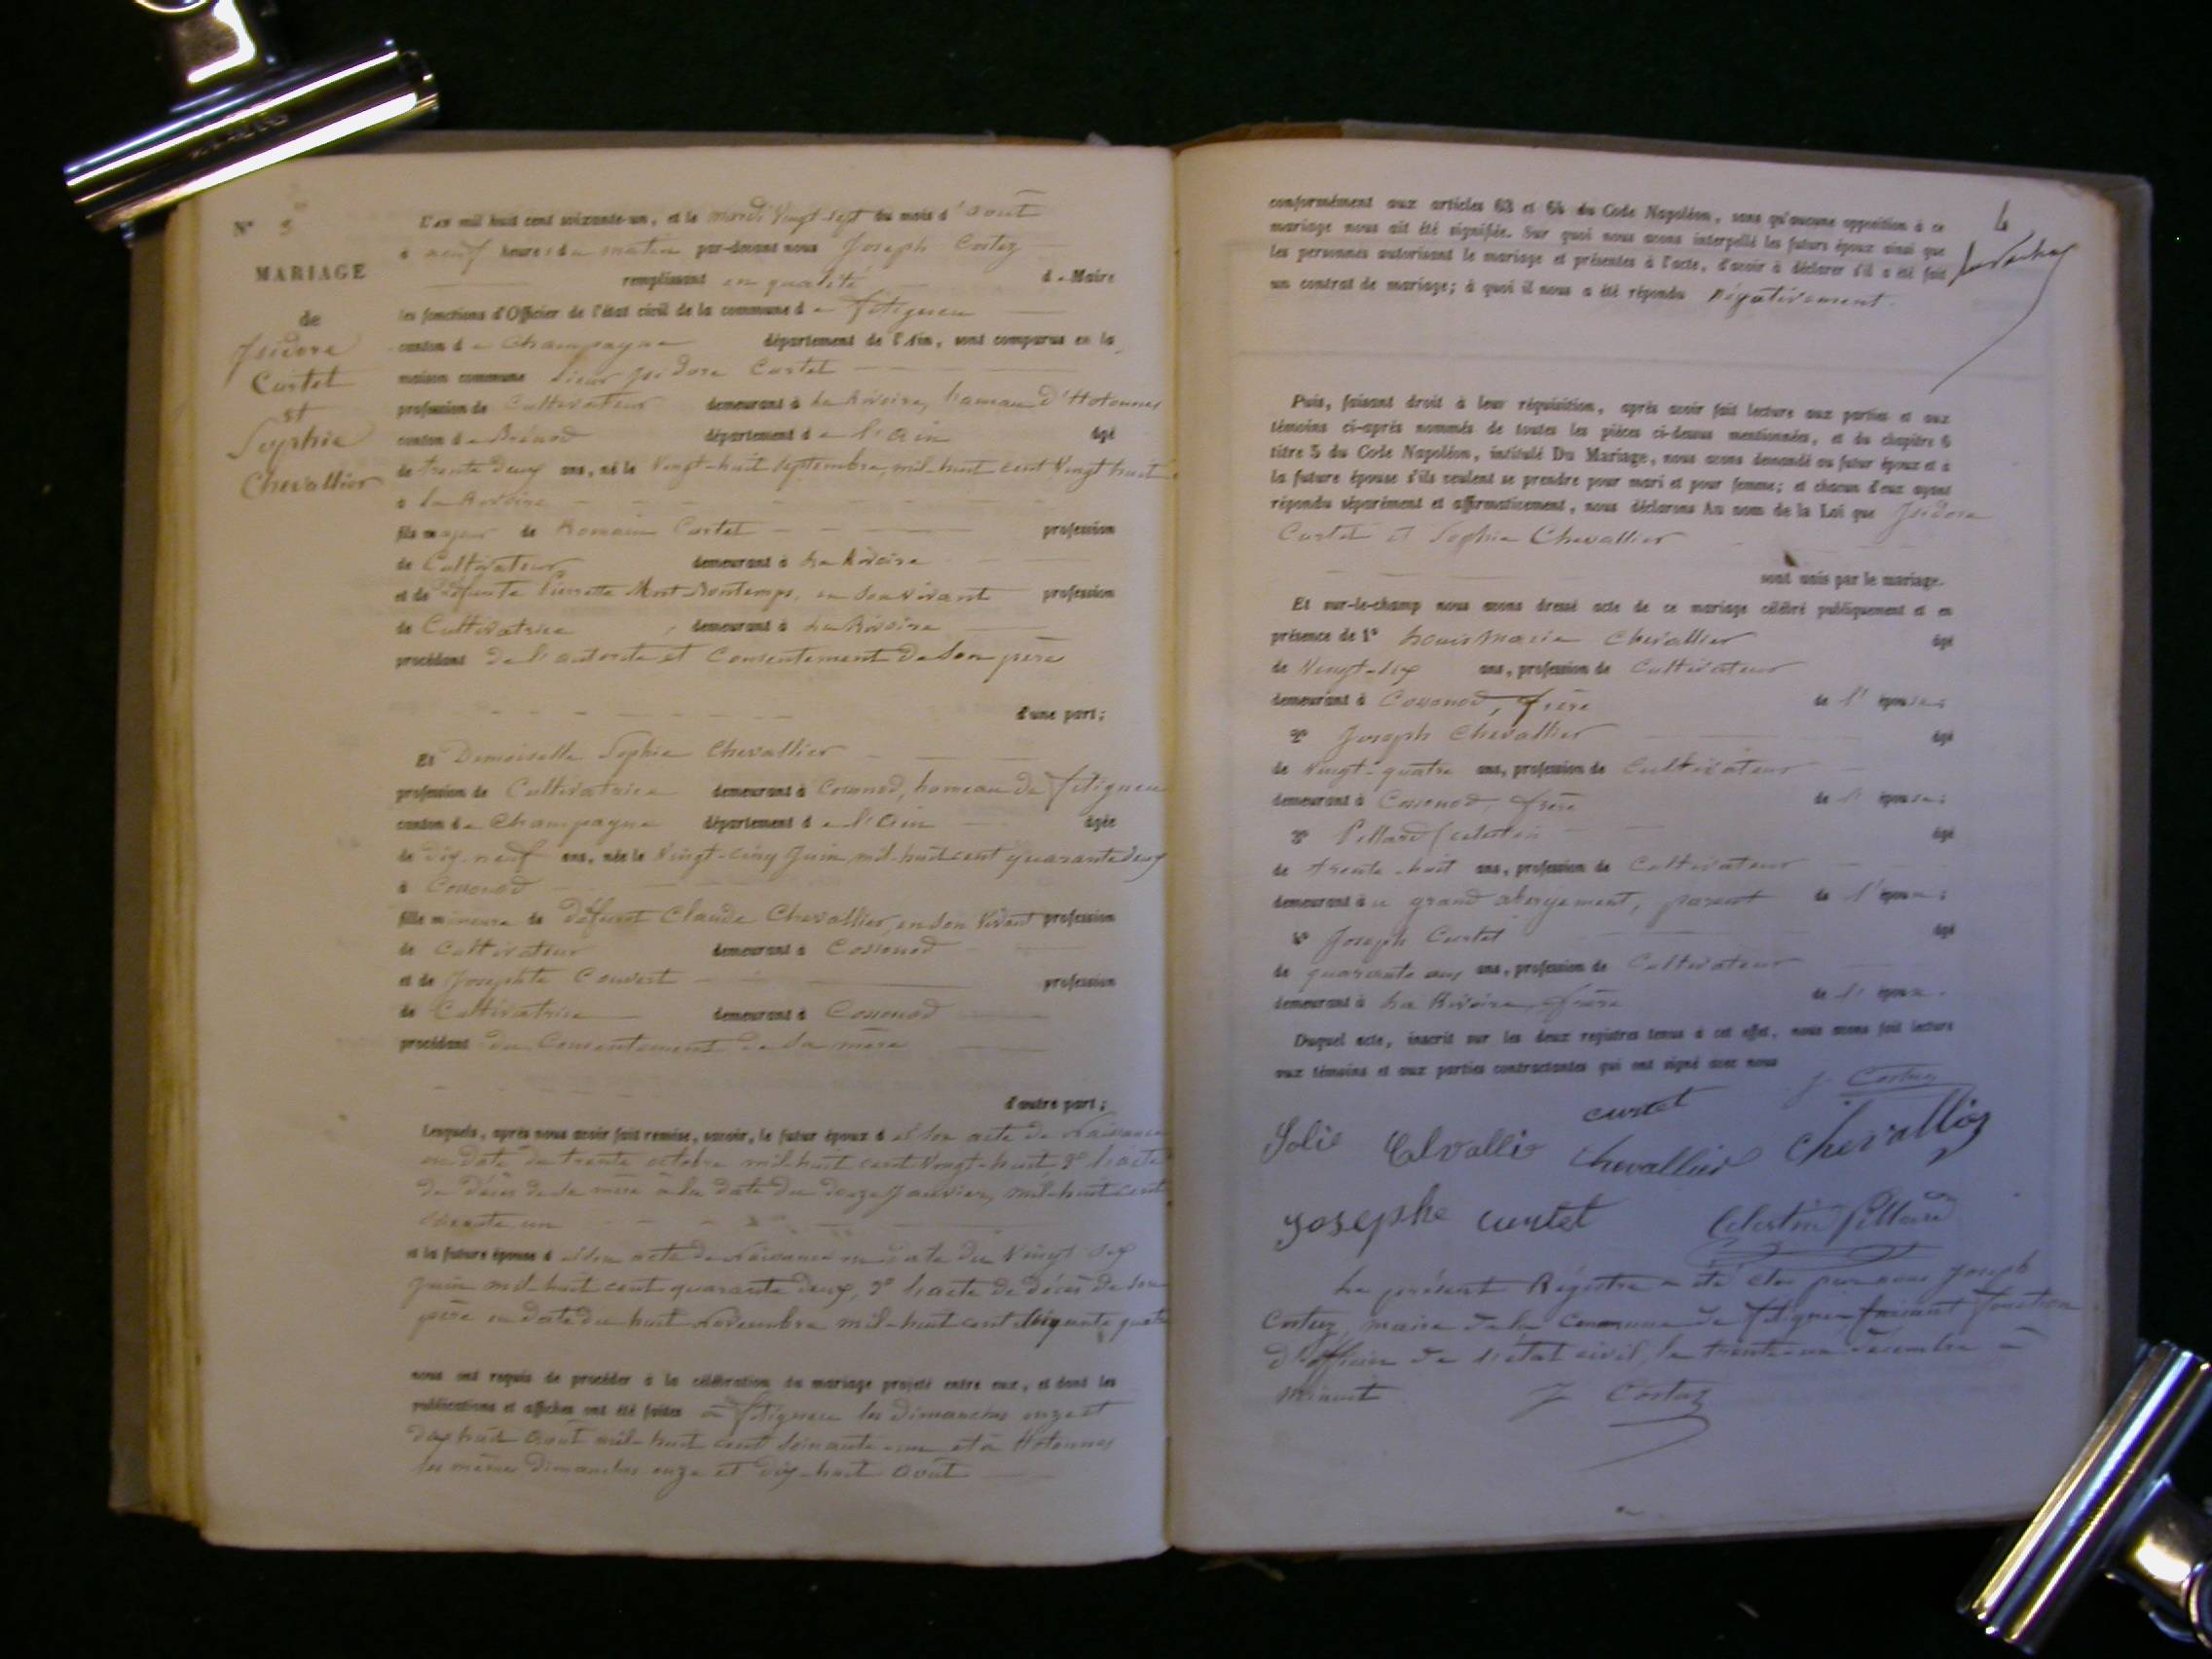 N° 3
MARIAGE
de
Isidore
Curtet
et
Sophie
Chevallier
L'an mil huit cent soixante-un, et le mardi vingt-sept du mois d'août
à neuf heures du matin par-devant nous Joseph Costaz
remplissant en qualité de Maire
les fonctions d'Officier de l'état civil de la commune de Fitignieu
canton de Champagne département de l'Ain, sont comparus en la
maison commune Sieur Isidore Curtet
profession de Cultivateur demeurant à La Rivoire, hameau d'Hotonnes
canton de Brénod département de l'Ain âgé
de trente deux ans, né le Vingt-huit septembre, mil-huit cent Vingt huit
à La Rivoire
fils majeur de Romain Curtet profession
de Cultivateur demeurant à La Rivoire
et de défunte Pierrette Mont Bontemps, en son vivant profession
de Cultivatrice, demeurant à La Rivoire
procédant de l'autorité et Consentement de Son père
d'une part;
Et Demoiselle Sophie Chevallier
profession de Cultivatrice demeurant à Cossonod, hameau de Fitignieu
canton de Champagne département de l'Ain âgée
de dix-neuf ans, née le Vingt-cinq Juin mil-huit cent quarante deux
à Cossonod
fille mineure de défunt Claude Chevallier, en son Vivant profession
de Cultivateur demeurant à Cossonod
et de Josephte Convert profession
de Cultivatrice demeurant à Cossonod
procédant du Consentement de Sa mère
d'autre part;
Lesquels, après nous avoir fait remise, savoir, le futur époux de son acte de Naissance
en date du trente octobre mil-huit cent Vingt-huit, 2° l'acte
de décès de sa mère à la date du douze Janvier, mil-huit cent
soixante un
et la future épouse de son acte de Naissance en date du Vingt six
Juin mil huit cent quarante deux, 2° l'acte de décès de Son
père en date du huit Novembre mil-huit cent
nous ont requis de procéder à la célébration du mariage projeté entre eux, et dont les
publications et affiches ont été faites à Fitignieu les dimanches onze et
dix huit août mil-huit cent soixante-un et à Hotonnes
les mêmes dimanches onze et dix-huit août
4
conformément aux articles 63 et 64 du Code Napoléon, sans qu'aucune opposition à ce
mariage nous ait été signifiée. Sur quoi nous avons interpellé les futurs époux ainsi que
les personnes autorisant le mariage et présentes à l'acte, d'avoir à déclarer s'il a été fait
un contrat de mariage; à quoi il nous a été répondu Négativement.
Puis, faisant droit à leur réquisition, après avoir fait lecture aux parties et aux
témoins ci-après nommés de toutes les pièces ci-dessus mentionnées, et du chapitre 6
titre 5 du Code Napoléon, intitulé Du Mariage, nous avons demandé au futur époux et à
la future épouse s'ils veulent se prendre pour mari et pour femme; et chacun d'eux ayant
répondu séparément et affirmativement, nous déclarons Au nom de la Loi que Isidore
Curtet et Sophie Chevallier
sont unis par le mariage.
Et sur-le-champ nous avons dressé acte de ce mariage célébré publiquement et en
présence de 1° Louis Marie Chevallier âgé
de Vingt-six ans, profession de Cultivateur
demeurant à Cossonod, frère de l'épouse;
2° Joseph Chevallier âgé
de Vingt-quatre ans, profession de Cultivateur
demeurant à Cossonod, frère de l'épouse;
3° Pillard Celestin âgé
de trente-huit ans, profession de Cultivateur
demeurant à grand abergement, parent de l'époux;
4° Joseph Curtet âgé
de quarante ans, profession de Cultivateur
demeurant à La Rivoire, frère de l'époux.
Duquel acte, inscrit sur les deux registres tenus à cet effet, nous avons fait lecture
aux témoins et aux parties contractantes qui ont signé avec nous
J. Costaz
curtet
Chevallier Chevallier
Josephe curtet Celestin Pillard
Le présent Régistre a été clos par nous Joseph
Costaz, maire de la Commune de Fitignieu faisant fonction
d'officier de l'état civil, le trente-un décembre à
Minuit J Costaz